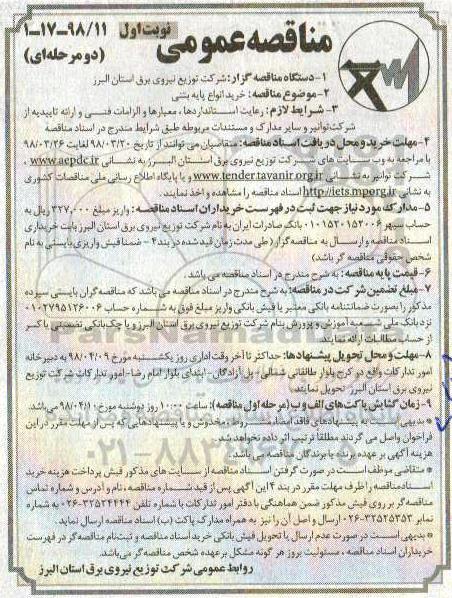 نوبت اول
۱-۱۷-۹۸/۱۱
(دو مرحله‌ای)
مناقصه عمومی
۱-دستگاه مناقصه گزار: شرکت توزیع نیروی برق استان البرز
۲-موضوع مناقصه: خرید انواع پایه بتنی
۳- شرایط لازم: رعایت استانداردها، معیارها و الزامات فنی و ارائه تاییدیه از
شرکت توانیر و سایر مدارک و مستندات مربوطه طبق شرایط مندرج در اسناد مناقصه
۴-مهلت خرید و محل دریافت اسناد مناقصه: متقاضیان می توانند از تاریخ ۹۸/۰۳/۲۰ لغایت ۹۸/۰۳/۲۶
با مراجعه به وب سایت های شرکت توزیع نیروی برق استان البرز به نشانی www.aepdc.ir ،
شرکت توانیر به نشانی www.tender.tavanir.org.ir و یا پایگاه اطلاع رسانی ملی مناقصات کشوری
به نشانی http://iets.mporg.ir اسناد مناقصه را مشاهده و اخذ نمایند.
۵-مدارک مورد نیاز جهت ثبت در فهرست خریداران اسناد مناقصه: واریز مبلغ ۳۲۷,۰۰۰ ریال به
حساب سپهر ۰۱۰۱۵۲۰۱۵۲۰۰۶ بانک صادرات ایران به نام شرکت توزیع نیروی برق استان البرز بابت خریداری
اسناد مناقصه و ارسال به مناقصه گزار (طی مدت زمان قید شده در بند ۴ - ضمنا فیش واریزی بایستی به نام
شخص حقوقی مناقصه گر باشد)
۶-قیمت پایه مناقصه: به شرح مندرج در اسناد مناقصه می باشد.
۷-مبلغ تضمین شرکت در مناقصه: به شرح مندرج در اسناد مناقصه می باشد که مناقصه گران بایستی سپرده
مذکور را بصورت ضمانتنامه بانکی معتبر یا فیش بانکی واریز مبلغ فوق به شماره حساب ۰۱۰۲۷۹۵۱۲۶۰۰۶
نزد بانک ملی شعبه آموزش و پرورش بنام شرکت توزیع نیروی برق استان البرز و یا چک بانکی تضمینی یا کسر
از حساب مطالبات ارائه نمایند.
۸-مهلت و محل تحویل پیشنهادها: حداکثر تا آخر وقت اداری روز یکشنبه مورخ ۹۸/۰۴/۰۹ به دبیرخانه
امور تدارکات واقع در کرج بلوار طالقانی شمالی- پل آزادگان - ابتدای بلوار امام رضا- امور تدارکات شرکت توزیع
نیروی برق استان البرز تحویل نمایند.
۹-زمان گشایش پاکت های الف و ب (مرحله اول مناقصه): ساعت ۱۰:۰۰ روز دوشنبه مورخ ۹۸/۰۴/۱۰ می باشد.
* بدیهی است به پیشنهادهای فاقد امضا، مشروط، مخدوش و یا پیشنهادهایی که پس از مهلت مقرر در این
فراخوان واصل می گردند مطلقا ترتیب اثر داده نخواهد شد.
هزینه آگهی بر عهده برنده یا برندگان مناقصه می باشد.
* متقاضی موظف است در صورت گرفتن اسناد مناقصه از سایت های مذکور فیش پرداخت هزینه خرید
اسناد مناقصه را ظرف مهلت مقرر در بند ۴ این آگهی پس از قید شماره مناقصه، نام و آدرس و شماره تماس
مناقصه گر بر روی فیش مذکور ضمن هماهنگی با دفتر امور تدارکات با شماره تلفن ۳۲۵۲۴۴۴۴-۰۲۶ به شماره
نمابر ۳۲۵۲۵۳۵۳-۰۲۶ ارسال و اصل آن را نیز به همراه مدارک پاکت (ب) اسناد مناقصه ارسال نماید.
* بدیهی است در صورت عدم ارسال یا تحویل فیش بانکی خرید اسناد مناقصه و ثبت نام مناقصه گر در فهرست
خریداران اسناد مناقصه، مسئولیت بروز هر گونه مشکل بر عهده شخص مناقصه گر می باشد.
روابط عمومی شرکت توزیع نیروی برق استان البرز